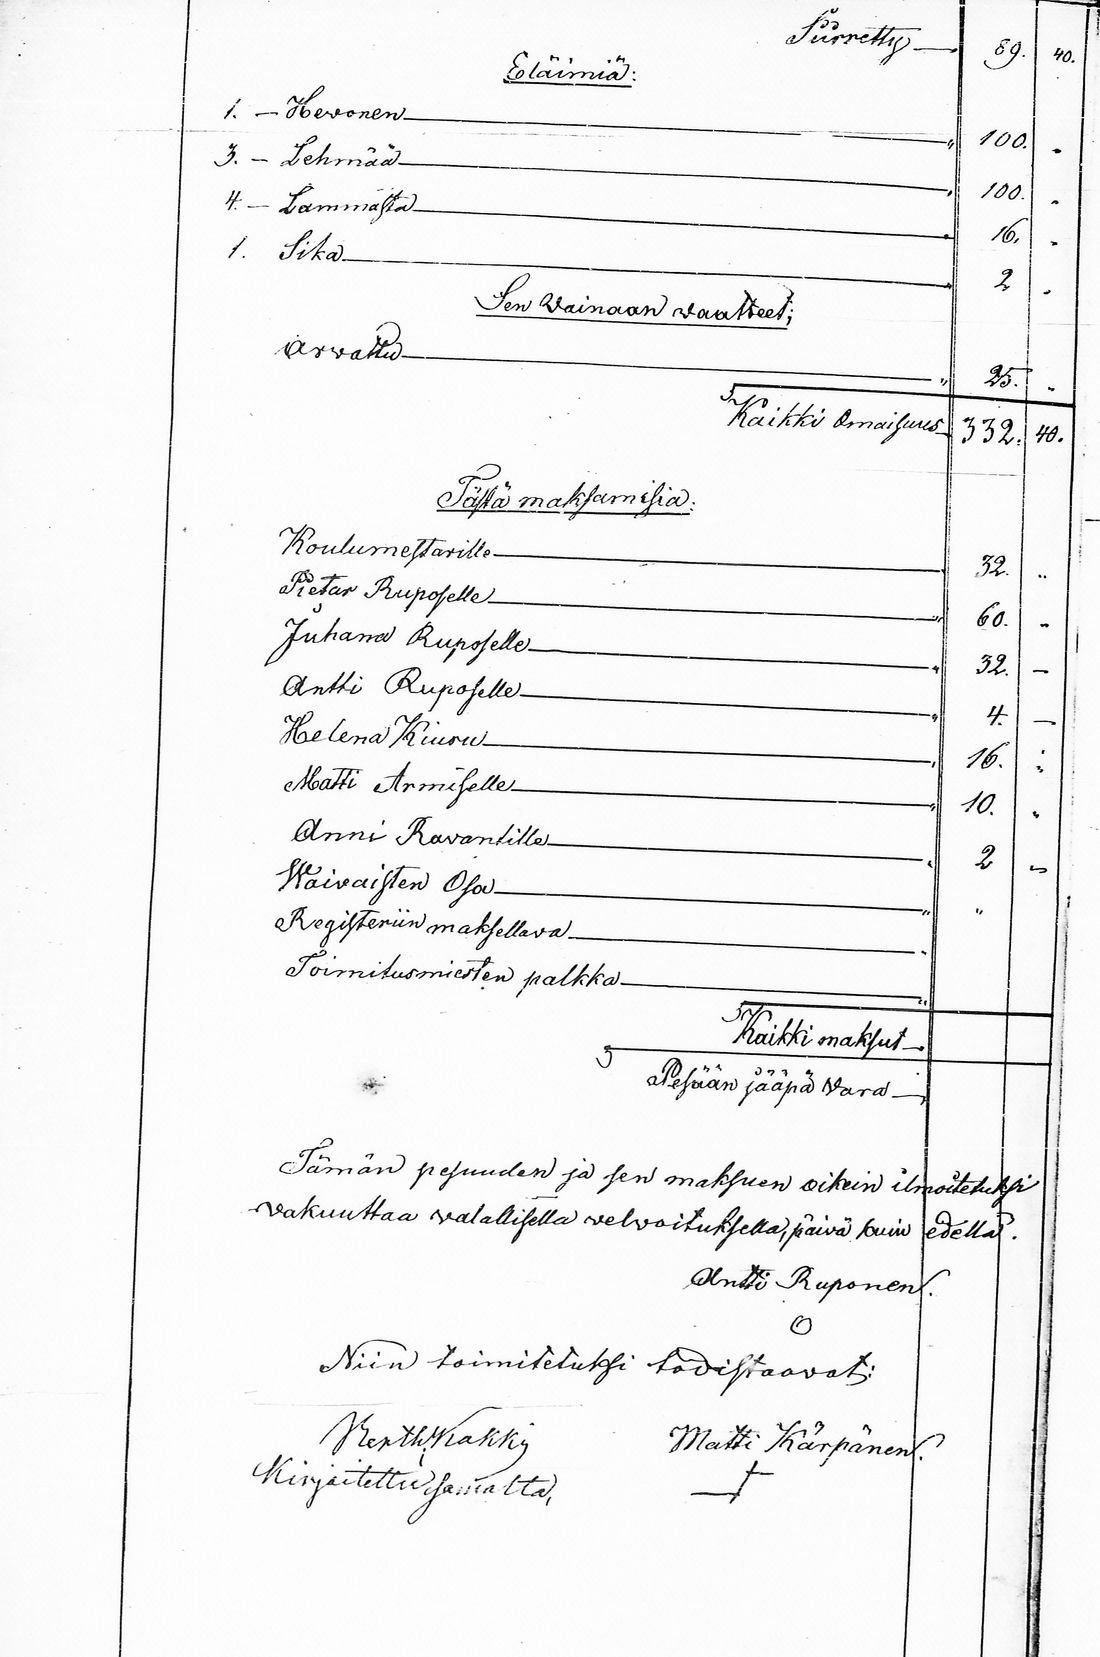 Siirretty — 89. 40.
Eläimiä:
1. — Hewonen — " 100. "
3. — Lehmää — " 100. "
4. — Lammasta — " 16. "
1. Sika — " 2 "
Sen Wainaan waatteet;
Arwattu — " 25. "
Kaikki Omaisuus — 332. 40.
Tästä maksamisia:
Koulumestarille — " 32. "
Pietar Ruposelle — " 60. "
Juhana Ruposelle — " 32. —
Antti Ruposelle — " 4. —
Helena Kiuru — " 16. "
Matti Armiselle — " 10. "
Anni Ravantille — " 2 "
Waivaisten Osa — " "
Registeriin maksellava — "
Toimitusmiesten palkka — "
Kaikki maksut —
Pesään jääpä Vara —
Tämän pesuuden ja sen maksuen oikein ilmoitetuksi
vakuuttaa walallisella welwoituksella, päivä kuin edellä.
Antti Ruponen.
Niin toimitetuksi todistaavat:
Matti Kärpänen.
Kirjoitettu samalta,